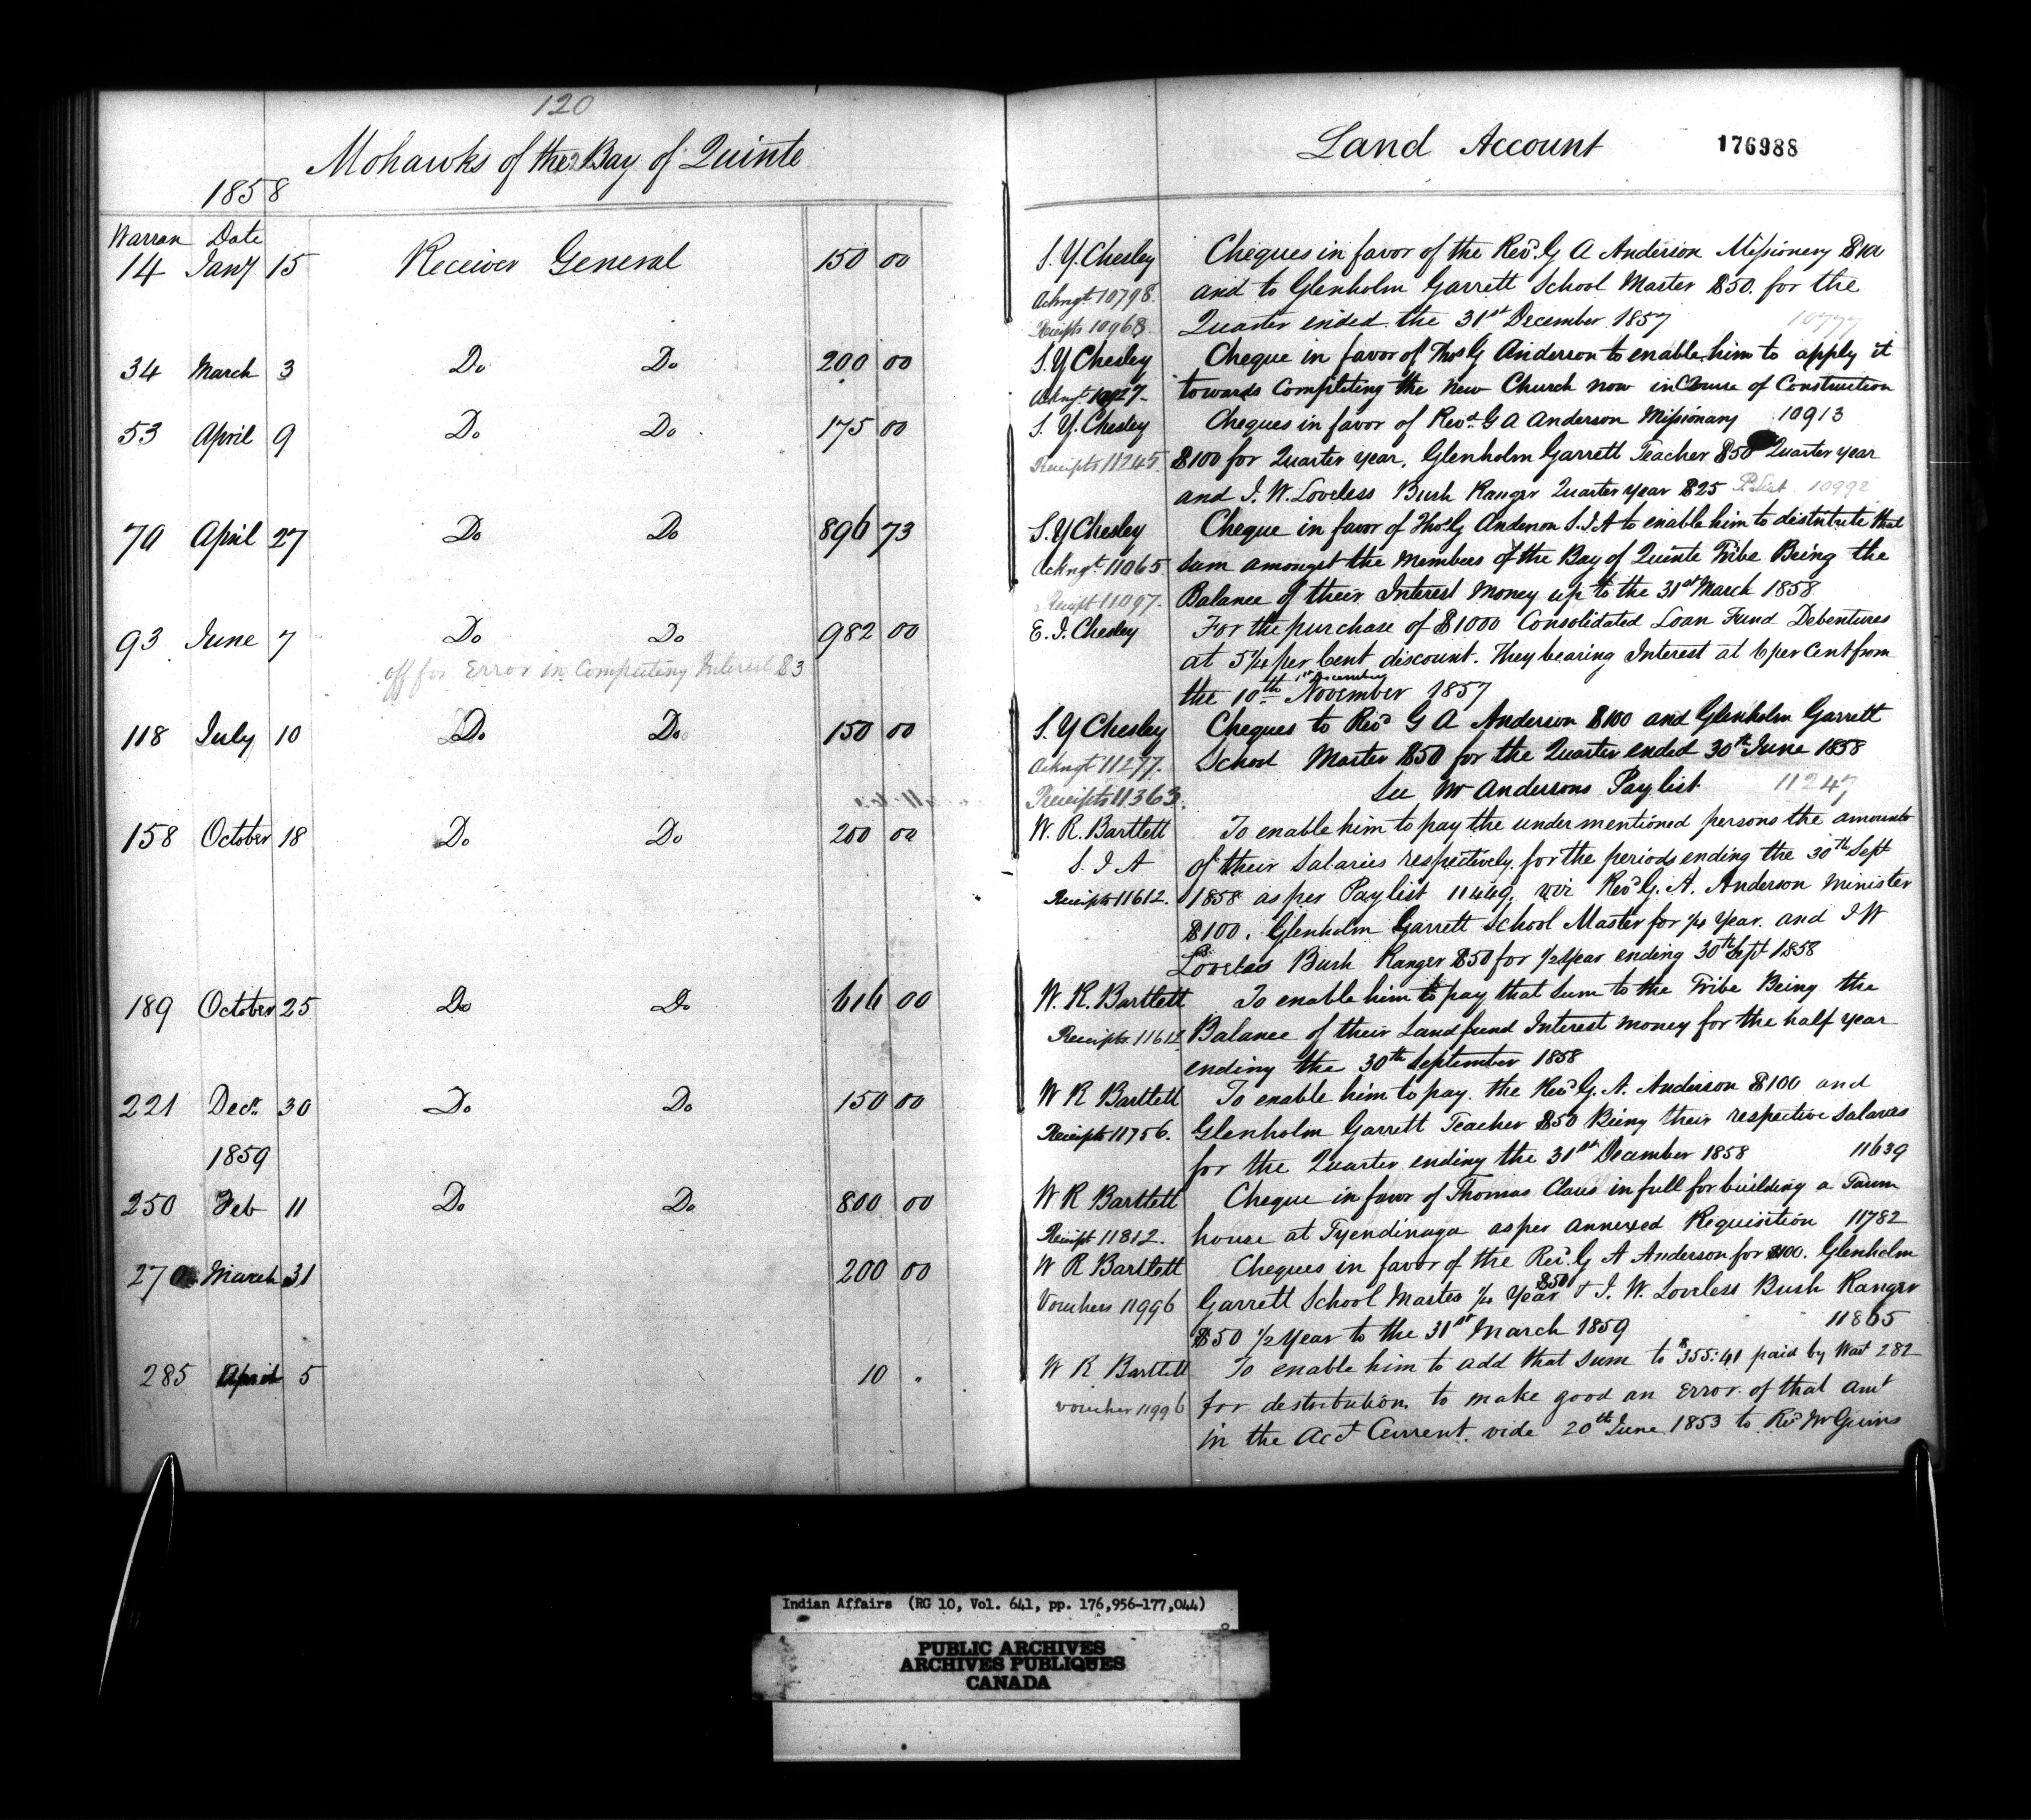 120
Mohawks of the Bay of Quinte
1858
Warran Date
14 Jany 15 Receiver General 150 00
34 March 3 Do Do 200 00
53 April 9 Do Do 175 00
70 April 27 Do Do 896 73
93 June 7 Do Do 982 00
off for Error in Computing Interest $3
118 July 10 Do Do 150 00
158 October 18 Do Do 200 00
189 October 25 Do Do 616 00
221 Decr 30 Do Do 150 00
1859
250 Feb 11 Do Do 800 00
270 March 31 200 00
285 April 5 10 "
Land Account 176988
S. Y. Chesley Cheques in favor of the Revd. G A Anderson Missionery $100
Ackngt 10798. and to Glenholm Garrett School Master $50. for the
Receipts 10968. Quarter ended the 31st December 1857 10777
S. Y Chesley Cheque in favor of Thos G Anderson to enable him to apply it
Ackngt. towards Completing the new Church now in Course of Construction
S. Y. Chesley Cheques in favor of Revd. G A Anderson Missionary 10913
Receipts 11245 $100 for Quarter year, Glenholm Garrett Teacher $50 Quarter year
and J. W. Loveless Bush Ranger Quarter year $25 10992
S. Y Chesley Cheque in favor of Thos G Anderson S.I.A to enable him to distribute that
Ackngt. 11065 sum amongst the Members of the Bay of Quinte Tribe Being the
Receipt 11097. Balance of their Interest Money up to the 31st March 1858
E. J. Chesley For the purchase of $1000 Consolidated Loan Fund Debentures
at 5 1/4 per Cent discount. They bearing Interest at 6 per Cent from
1st December
the 10th November 1857
S. Y Chesley Cheques to Revd G A Anderson $100 and Glenholm Garrett
Ackngt 11277. School Master $50 for the Quarter ended 30th June 1858
Receipts 11363. See Mr Andersons Paylist 11247
W. R. Bartlett To enable him to pay the under mentioned persons the amounts
S. I A of their Salaries respectively, for the periods ending the 30th Sept
Receipts 11612. 1858 as per Paylist 11449, viz Revd G. A. Anderson Minister
$100. Glenholm Garrett School Master for 1/4 Year. and J W
Loveless Bush Ranger $50 for 1/2 Year ending 30th Sept 1858
W. R. Bartlett To enable him to pay that Sum to the Tribe Being the
Receipts. Balance of their Land fund Interest money for the half year
ending the 30th September 1858
W R Bartlett To enable him to pay. the Revd G. A. Anderson $100 and
Receipts 11756. Glenholm Garrett Teacher $50 Being their respective Salaries
for the Quarter ending the 31st December 1858 11639
W R Bartlett Cheque in favor of Thomas Claus in full for building a Town
Receipt 11812. house at Tyendinaga as per annexed Requisition 11782
W R Bartlett Cheques in favor of the Revd. G A Anderson for $100. Glenholm
$50
Vouchers 11996 Garrett School Master 1/4 Year + J. W. Loveless Bush Ranger
$50 1/2 Year to the 31st March 1859 11865
W R Bartlett To enable him to add that sum to $355:41 paid by Wart 282
voucher 11996 for destribution to make good an Error of that Amt
in the Acct Current. vide 20th June 1853 to Revd Mr
Indian Affairs (RG 10, Vol. 641, pp. 176,956-177,044)
PUBLIC ARCHIVES
ARCHIVES PUBLIQUES
CANADA